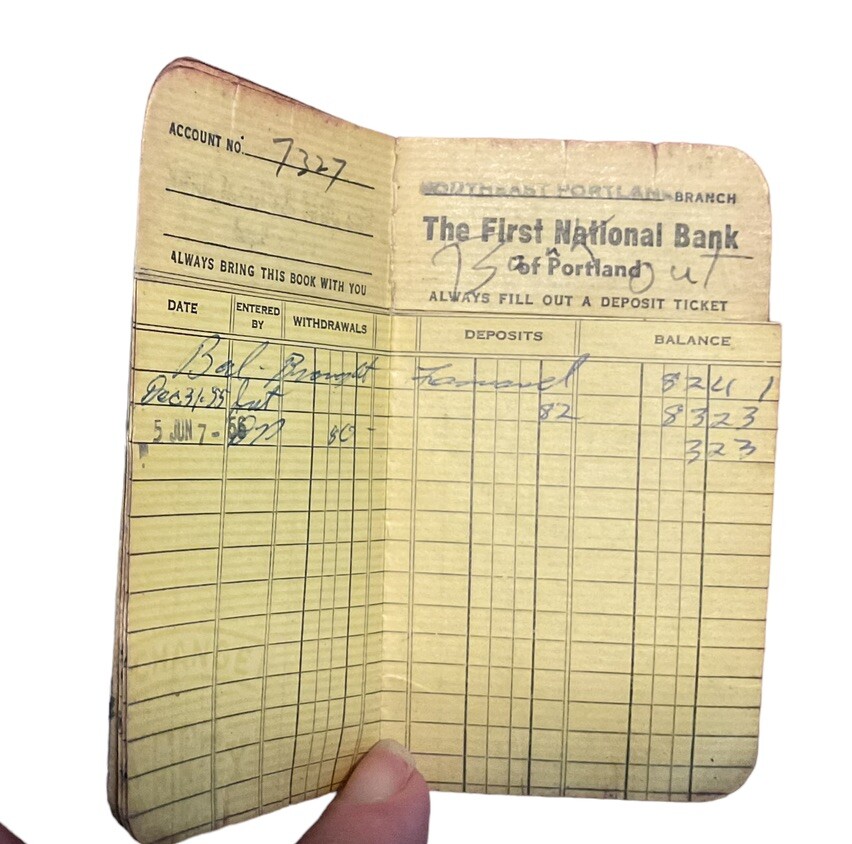 ACCOUNT NO. 7327
ALWAYS BRING THIS BOOK WITH YOU
NORTHEAST PORTLAND BRANCH
The First National Bank
of Portland
out
ALWAYS FILL OUT A DEPOSIT TICKET
DATE ENTERED BY WITHDRAWALS DEPOSITS BALANCE
Bal. Brought Forward 82 41
Dec 31-55 Int 82 83 23
5 JUN 7 - 56 80 - 3 23